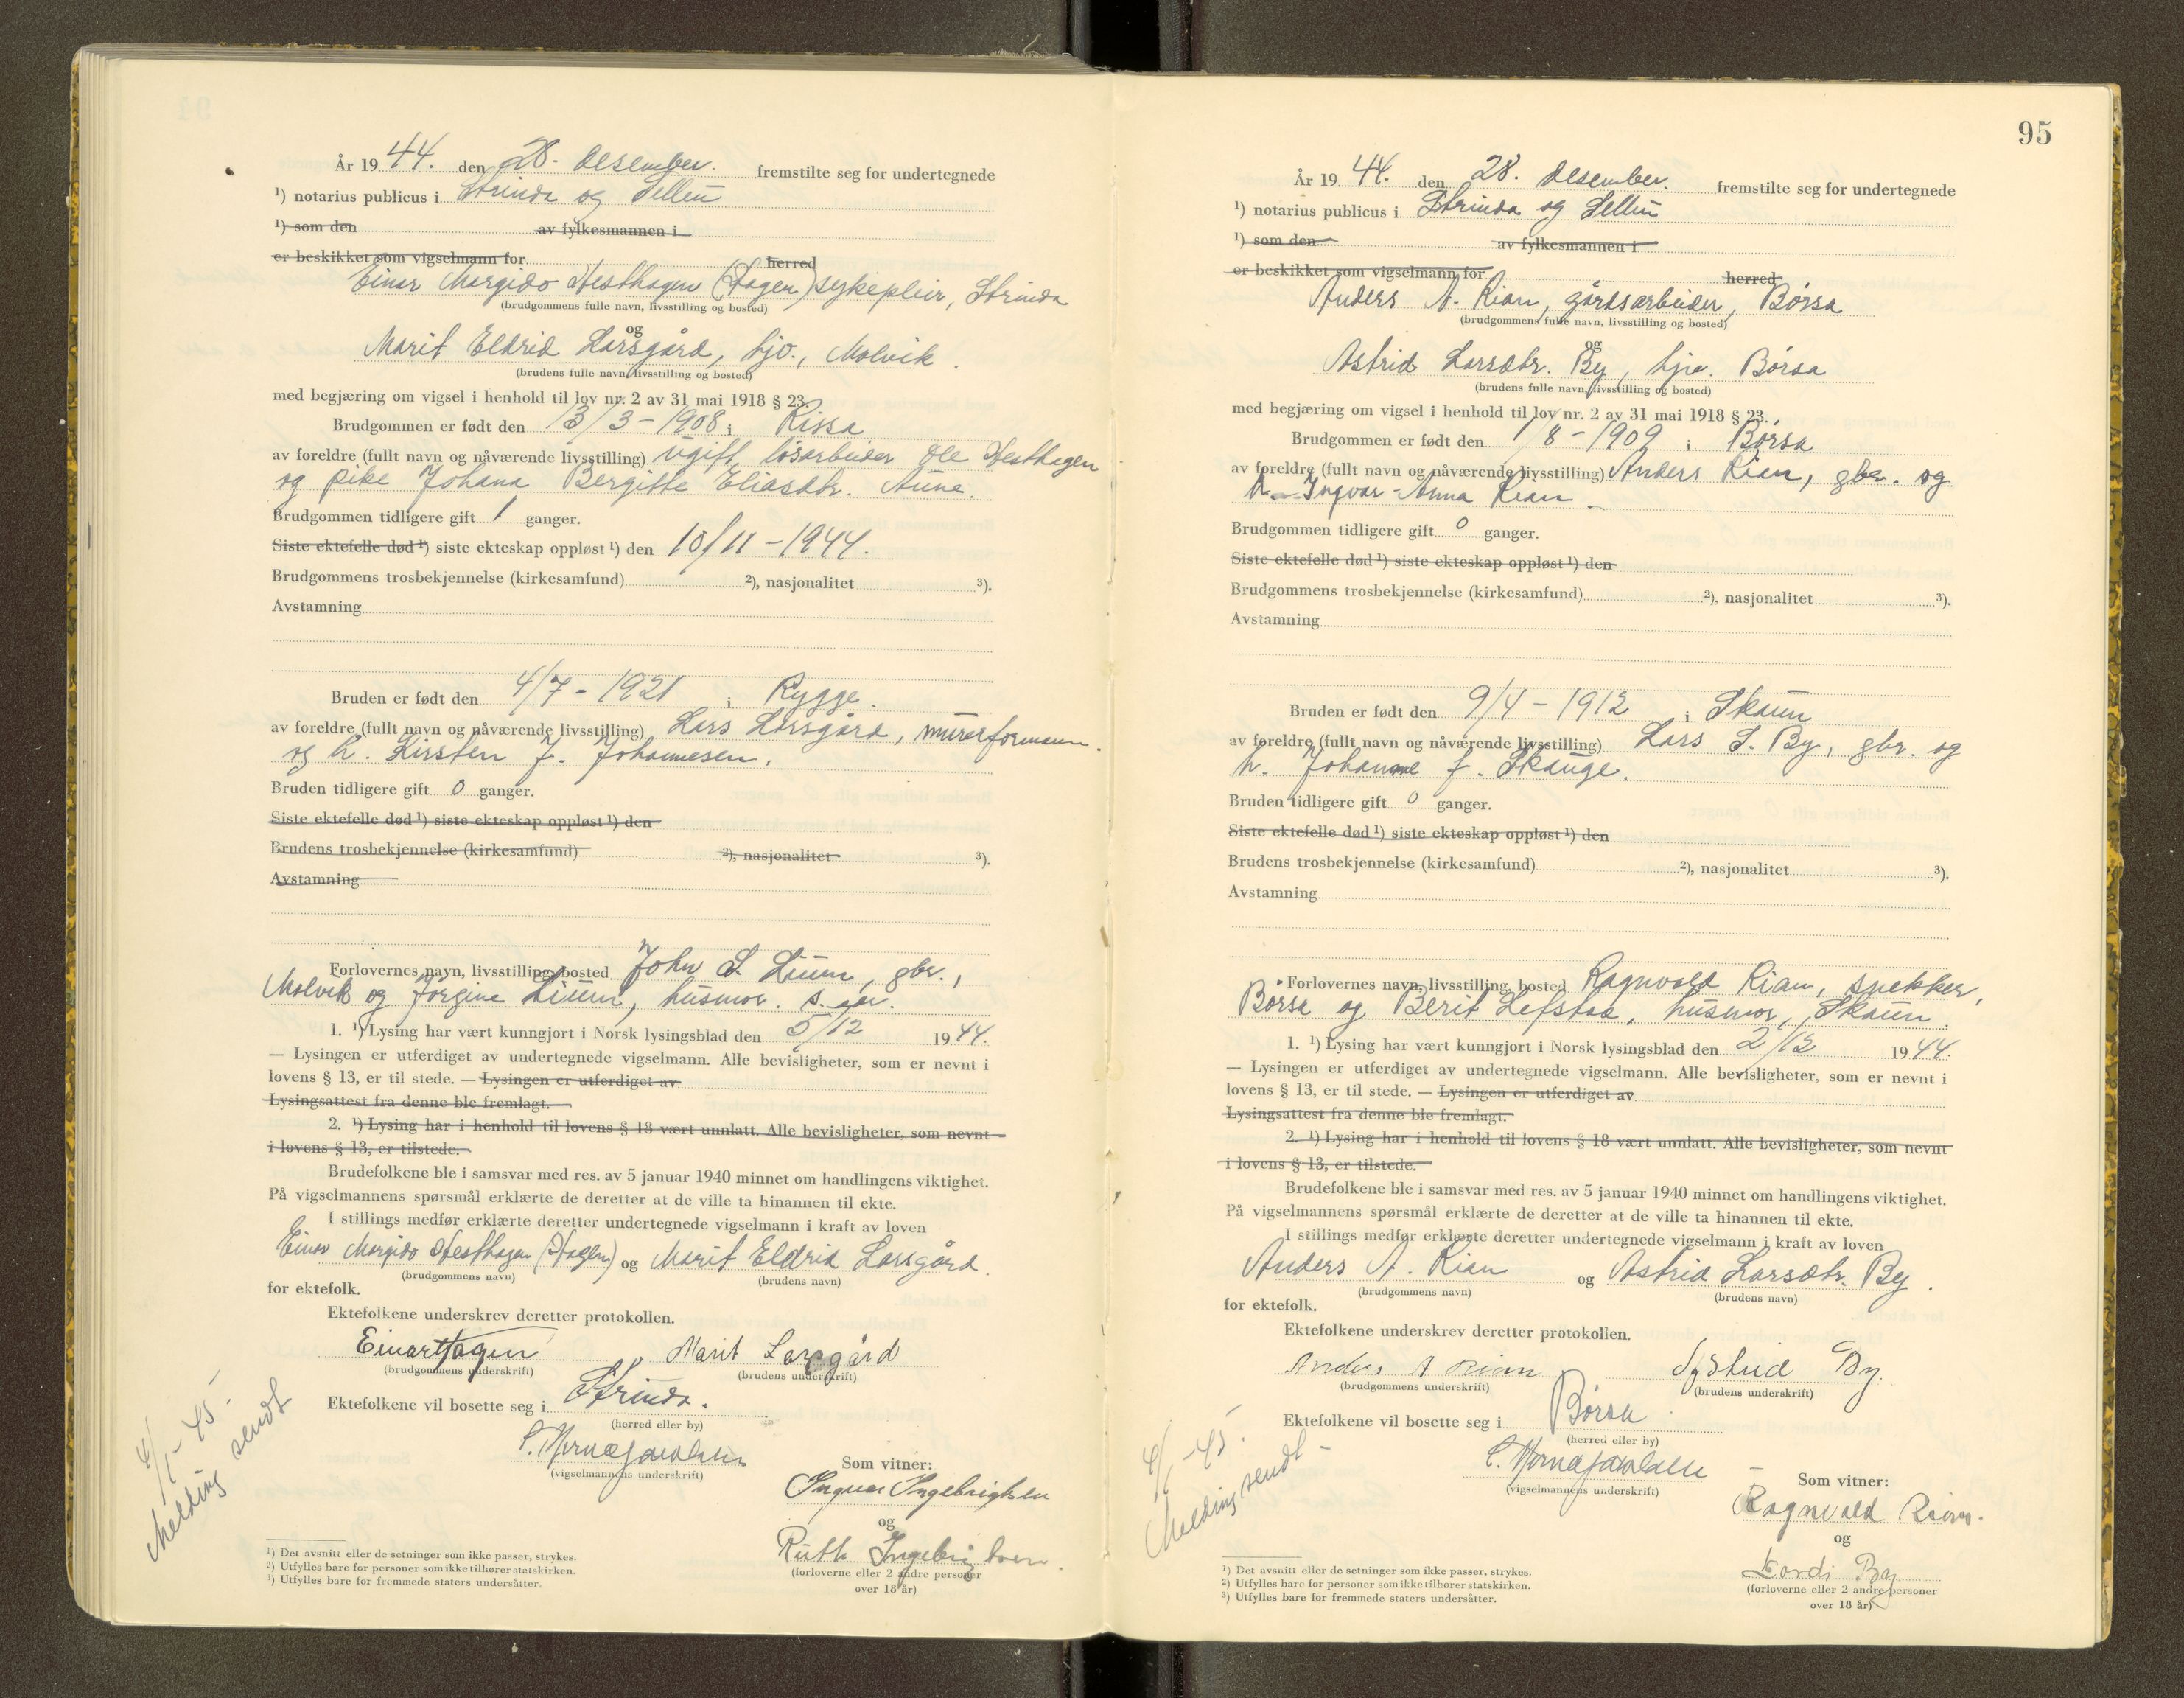 År 1944. den 28. desember. fremstilte seg for undertegnede
¹) notarius publicus i Strinda og Selbu
¹) som den av fylkesmannen i
er beskikket som vigselmann for herred
Einar Margido Hesthagen (Hagen) sykepleier, Strinda
(brudgommens fulle navn, livsstilling og bosted)
og
Marit Eldrid Larsgård, hjv., Malvik.
(brudens fulle navn, livsstilling og bosted)
med begjæring om vigsel i henhold til lov nr. 2 av 31 mai 1918 § 23.
Brudgommen er født den 13/3-1908 i Rissa
av foreldre (fullt navn og nåværende livsstilling) ugift løsarbeider Ole Hesthagen
og pike Johana Bergitte Eliasdtr. Aune.
Brudgommen tidligere gift 1 ganger.
Siste ektefelle død ¹) siste ekteskap oppløst ¹) den 10/11-1944.
Brudgommens trosbekjennelse (kirkesamfund) ²), nasjonalitet ³).
Avstamning
Bruden er født den 4/7-1921 i Rygge.
av foreldre (fullt navn og nåværende livsstilling) Lars Larsgård, murerformann.
og h. Kirsten f. Johannesen.
Bruden tidligere gift 0 ganger.
Siste ektefelle død ¹) siste ekteskap oppløst ¹) den
Brudens trosbekjennelse (kirkesamfund) ²), nasjonalitet ³).
Avstamning
Forlovernes navn, livsstilling, bosted John L Lium, gbr.,
Malvik og Jørgine Lium, husmor. s.
1. ¹) Lysing har vært kunngjort i Norsk lysingsblad den 5/12 1944.
— Lysingen er utferdiget av undertegnede vigselmann. Alle bevisligheter, som er nevnt i
lovens § 13, er til stede. — Lysingen er utferdiget av
Lysingsattest fra denne ble fremlagt.
2. ¹) Lysing har i henhold til lovens § 18 vært unnlatt. Alle bevisligheter, som nevnt
i lovens § 13, er tilstede.
Brudefolkene ble i samsvar med res. av 5 januar 1940 minnet om handlingens viktighet.
På vigselmannens spørsmål erklærte de deretter at de ville ta hinannen til ekte.
I stillings medfør erklærte deretter undertegnede vigselmann i kraft av loven
Einar Margido Hesthagen (Hagen) og Marit Eldrid Larsgård.
(brudgommens navn) (brudens navn)
for ektefolk.
Ektefolkene underskrev deretter protokollen.
Einar Hagen Marit Larsgård
(brudgommens underskrift) (brudens underskrift)
Ektefolkene vil bosette seg i Strinda.
(herred eller by)
(vigselmannens underskrift)
Som vitner:
Ingvar Ingebrigtsen
og
Ruth Ingebrigtsen.
(forloverne eller 2 andre personer
over 18 år)
4/1-45-
Melding sendt
¹) Det avsnitt eller de setninger som ikke passer, strykes.
²) Utfylles bare for personer som ikke tilhører statskirken.
³) Utfylles bare for fremmede staters undersåtter.
95
År 1944. den 28. desember. fremstilte seg for undertegnede
¹) notarius publicus i Strinda og Selbu
¹) som den av fylkesmannen i
er beskikket som vigselmann for herred
Anders A. Rian, gårdsarbeider, Børsa
(brudgommens fulle navn, livsstilling og bosted)
og
Astrid Larsdtr. By, hjv. Børsa
(brudens fulle navn, livsstilling og bosted)
med begjæring om vigsel i henhold til lov nr. 2 av 31 mai 1918 § 23.
Brudgommen er født den 1/8-1909 i Børsa
av foreldre (fullt navn og nåværende livsstilling) Anders Rian, gbr. og
h. Ingvar-Anna Rian.
Brudgommen tidligere gift 0 ganger.
Siste ektefelle død ¹) siste ekteskap oppløst ¹) den
Brudgommens trosbekjennelse (kirkesamfund) ²), nasjonalitet ³).
Avstamning
Bruden er født den 9/4-1912 i Skaun
av foreldre (fullt navn og nåværende livsstilling) Lars S. By, gbr. og
h. Johanne f. Skauge.
Bruden tidligere gift 0 ganger.
Siste ektefelle død ¹) siste ekteskap oppløst ¹) den
Brudens trosbekjennelse (kirkesamfund) ²), nasjonalitet ³).
Avstamning
Forlovernes navn, livsstilling, bosted Ragnvald Rian, snekker,
Børsa og Berit Lefstad, husmor, Skaun.
1. ¹) Lysing har vært kunngjort i Norsk lysingsblad den 2/12 1944.
— Lysingen er utferdiget av undertegnede vigselmann. Alle bevisligheter, som er nevnt i
lovens § 13, er til stede. — Lysingen er utferdiget av
Lysingsattest fra denne ble fremlagt.
2. ¹) Lysing har i henhold til lovens § 18 vært unnlatt. Alle bevisligheter, som nevnt
i lovens § 13, er tilstede.
Brudefolkene ble i samsvar med res. av 5 januar 1940 minnet om handlingens viktighet.
På vigselmannens spørsmål erklærte de deretter at de ville ta hinannen til ekte.
I stillings medfør erklærte deretter undertegnede vigselmann i kraft av loven
Anders A. Rian og Astrid Larsdtr. By.
(brudgommens navn) (brudens navn)
for ektefolk.
Ektefolkene underskrev deretter protokollen.
Anders A Rian Astrid By.
(brudgommens underskrift) (brudens underskrift)
Ektefolkene vil bosette seg i Børsa
(herred eller by)
(vigselmannens underskrift)
Som vitner:
Ragnvald Rian.
og
Lordi By
(forloverne eller 2 andre personer
over 18 år)
4/1-45-
Melding sendt-
¹) Det avsnitt eller de setninger som ikke passer, strykes.
²) Utfylles bare for personer som ikke tilhører statskirken.
³) Utfylles bare for fremmede staters undersåtter.